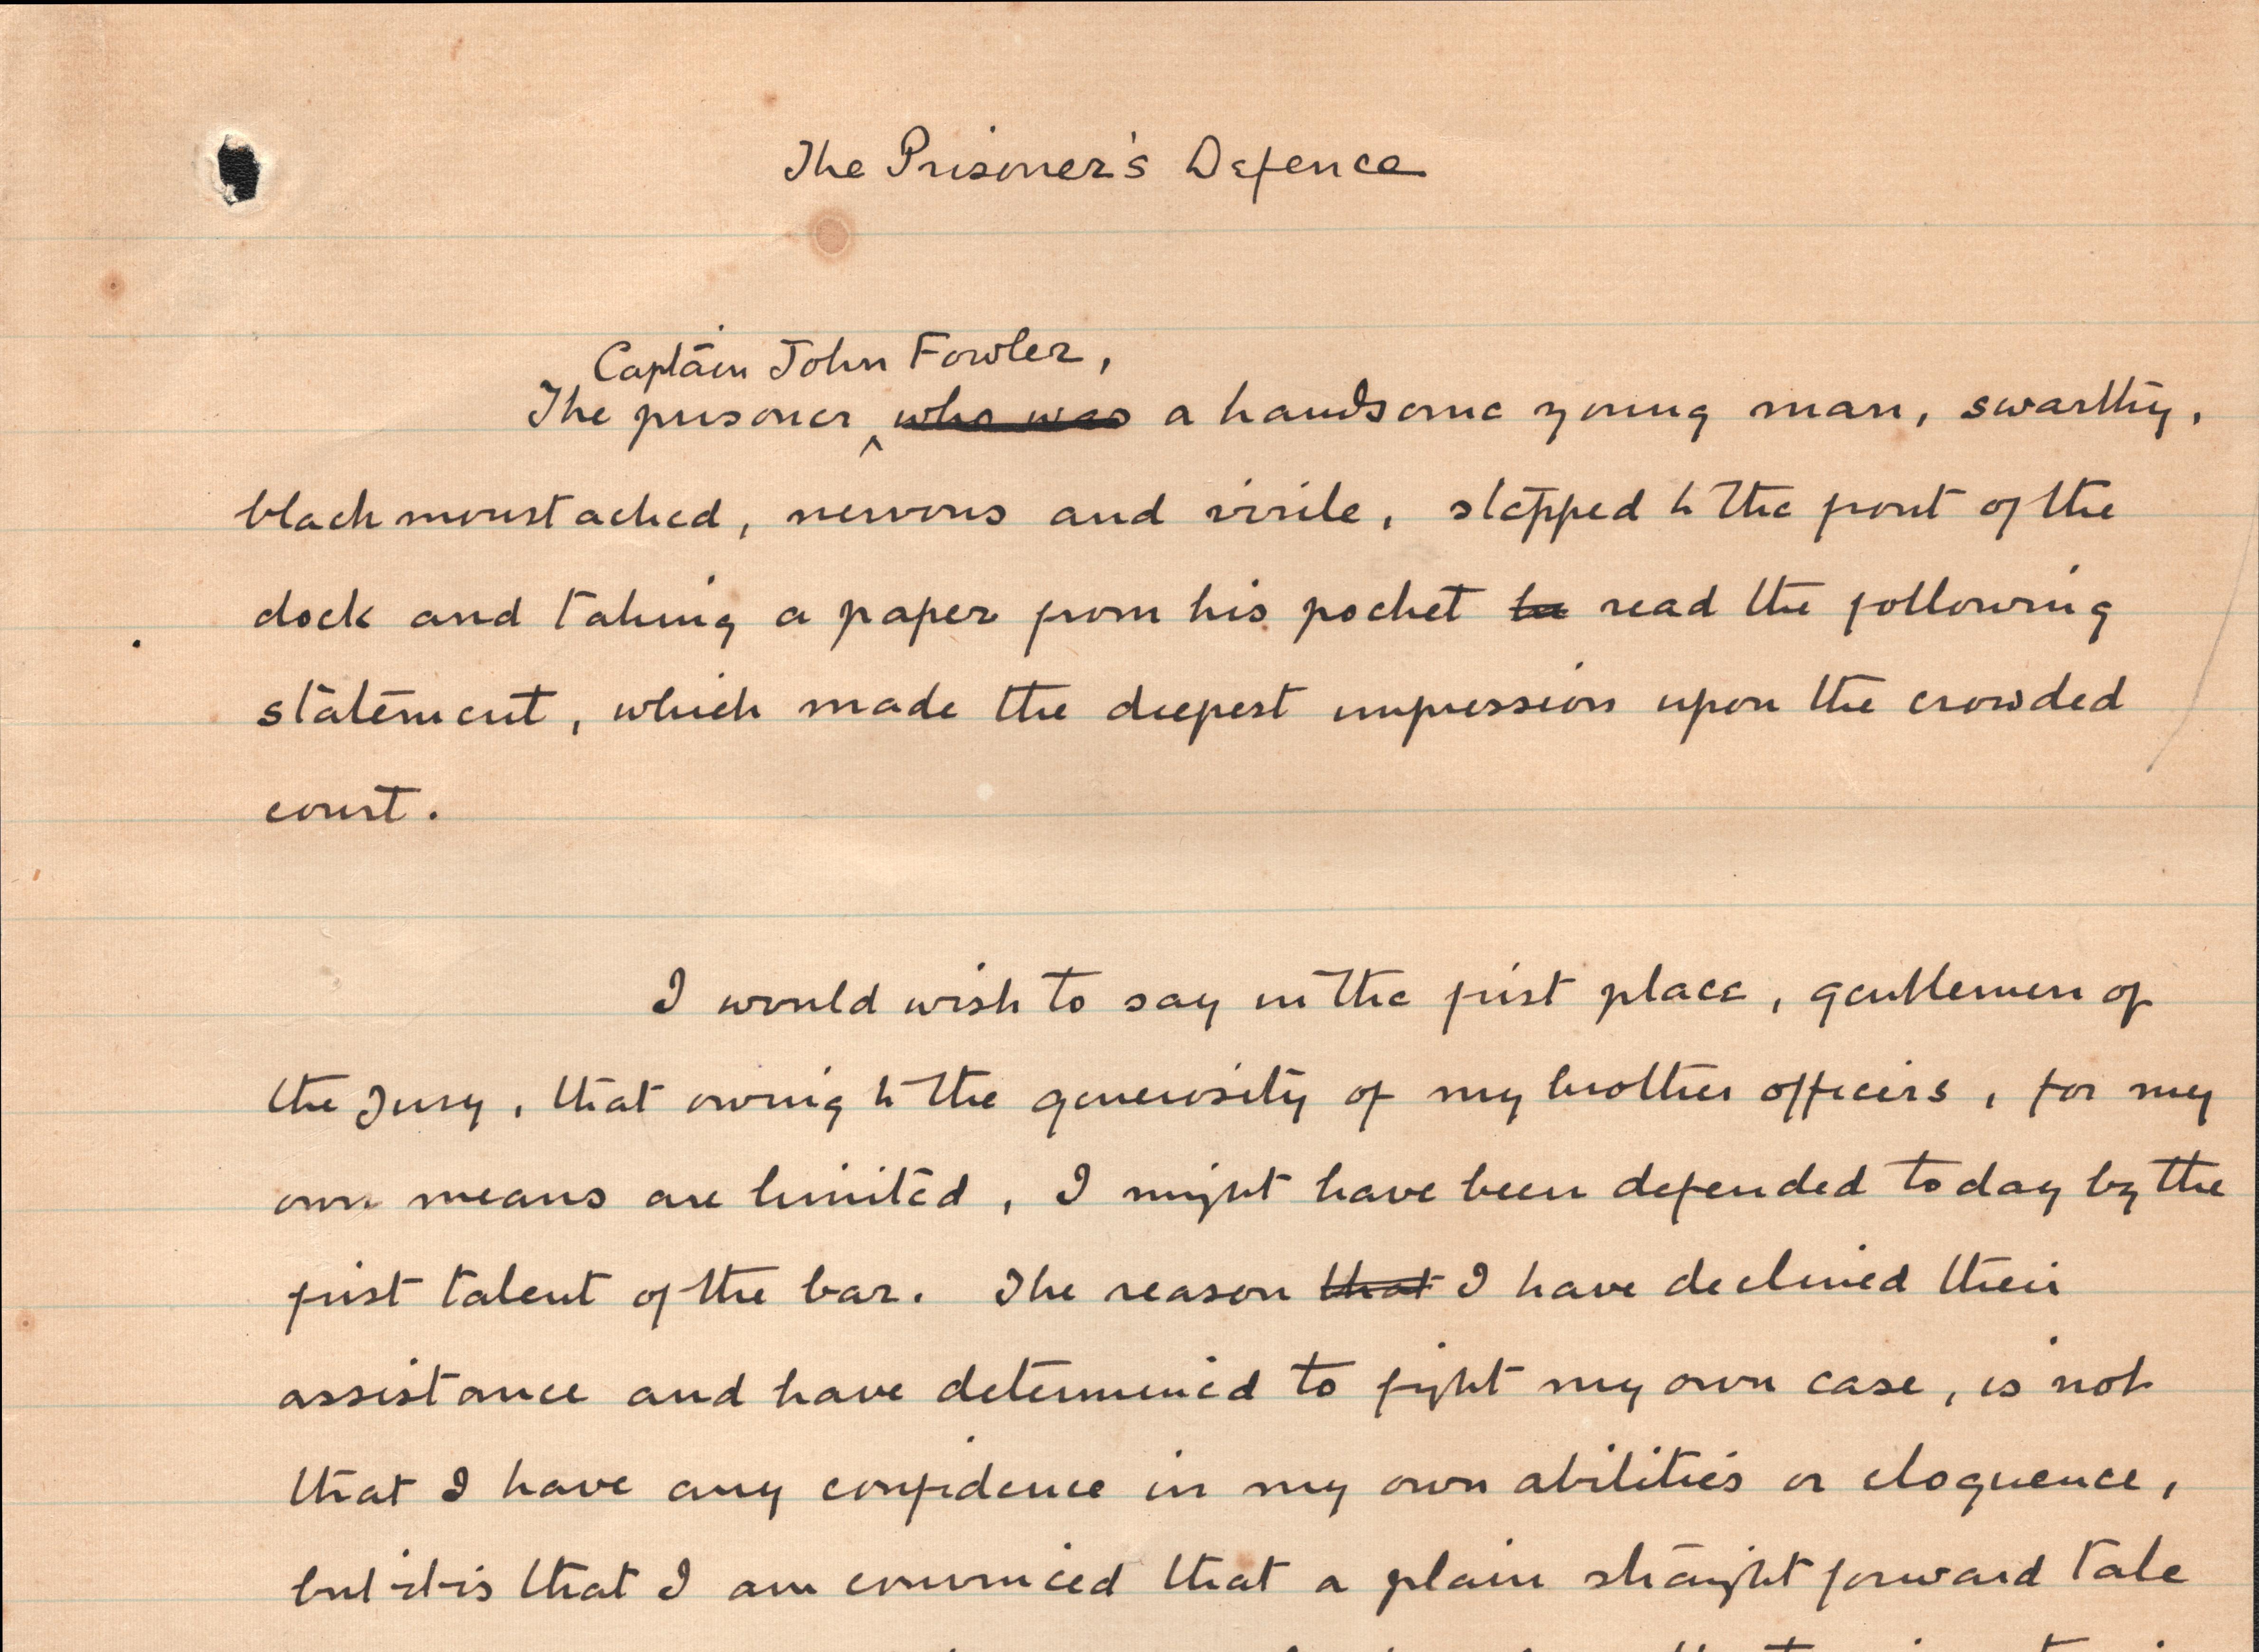 The Prisoner's Defence
Captain John Fowler,
The prisoner ^ who was a handsome young man, swarthy,
black moustached, nervous and virile, stepped to the front of the
dock and taking a paper from his pocket to read the following
statement, which made the deepest impression upon the crowded
court.
I would wish to say in the first place, gentlemen of
the Jury, that owing to the generosity of my brother officers, for my
own means are limited, I might have been defended today by the
first talent of the bar. The reason that I have declined their
assistance and have determined to fight my own case, is not
that I have any confidence in my own abilities or eloquence,
but it is that I am convinced that a plain straight forward tale